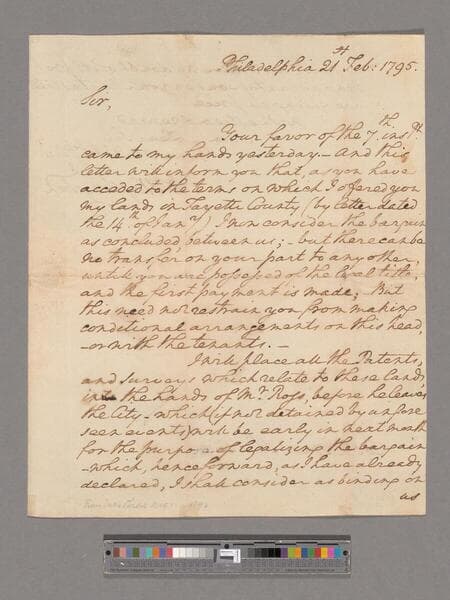 Philadelphia 21st Feb: 1795.
Sir,
Your favor of the 7th. inst.
came to my hands yesterday.— And this
letter will inform you that, as you have
acceded to the terms on which I offered you
my lands in Fayette County (by letter dated
the 14th of Jany.) I now consider the bargain
as concluded between us;— but there can be
no transfer on your part to any other,
until you are possessed of the legal title,
and the first payment is made; But
this need not restrain you from making
conditional arrangements on this head
—or with the tenants.—
I will place all the Patents,
and surveys which relate to these lands
into the hands of Mr. Ross, before he leaves
the City—which (if not detained by unfore
seen events) will be early in next month
for the purpose of legalizing the bargain
—which, henceforward, as I have already
declared, I shall consider as binding on
us